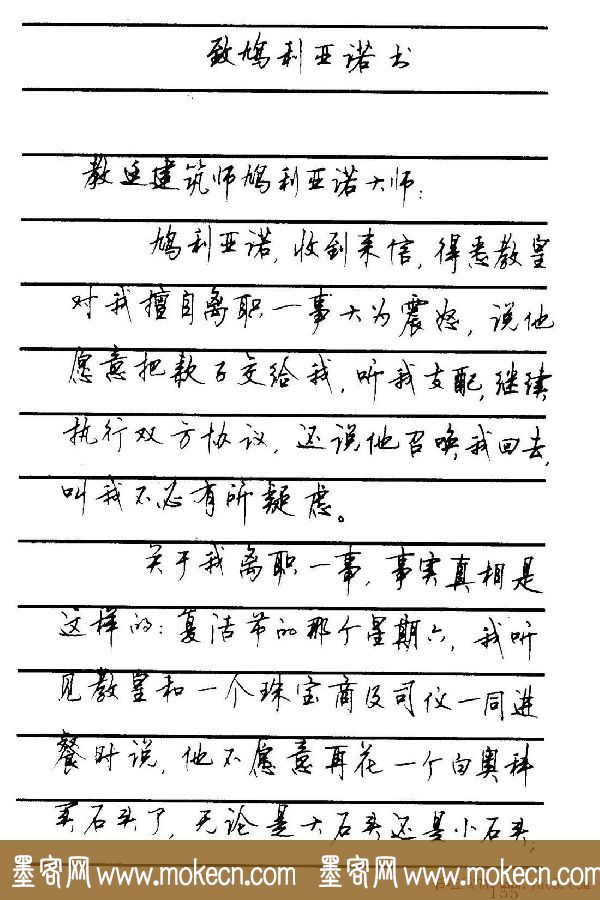 致鸠利亚诺书
教廷建筑师鸠利亚诺大师:
鸠利亚诺,收到来信,得悉教皇
对我擅自离职一事大为震怒,说他
愿意把款百交给我,听我支配,继续
执行双方协议,还说他召唤我回去,
叫我不必有所疑虑。
关于我离职一事,事实真相是
这样的:复活节的那个星期六,我听
见教皇和一个珠宝商及司仪一同进
餐时说,他不愿意再花一个白奥科
买石头了,无论是大石头还是小石头;
墨客网 www.mokecn.com 墨客网 www.mokecn.com
155